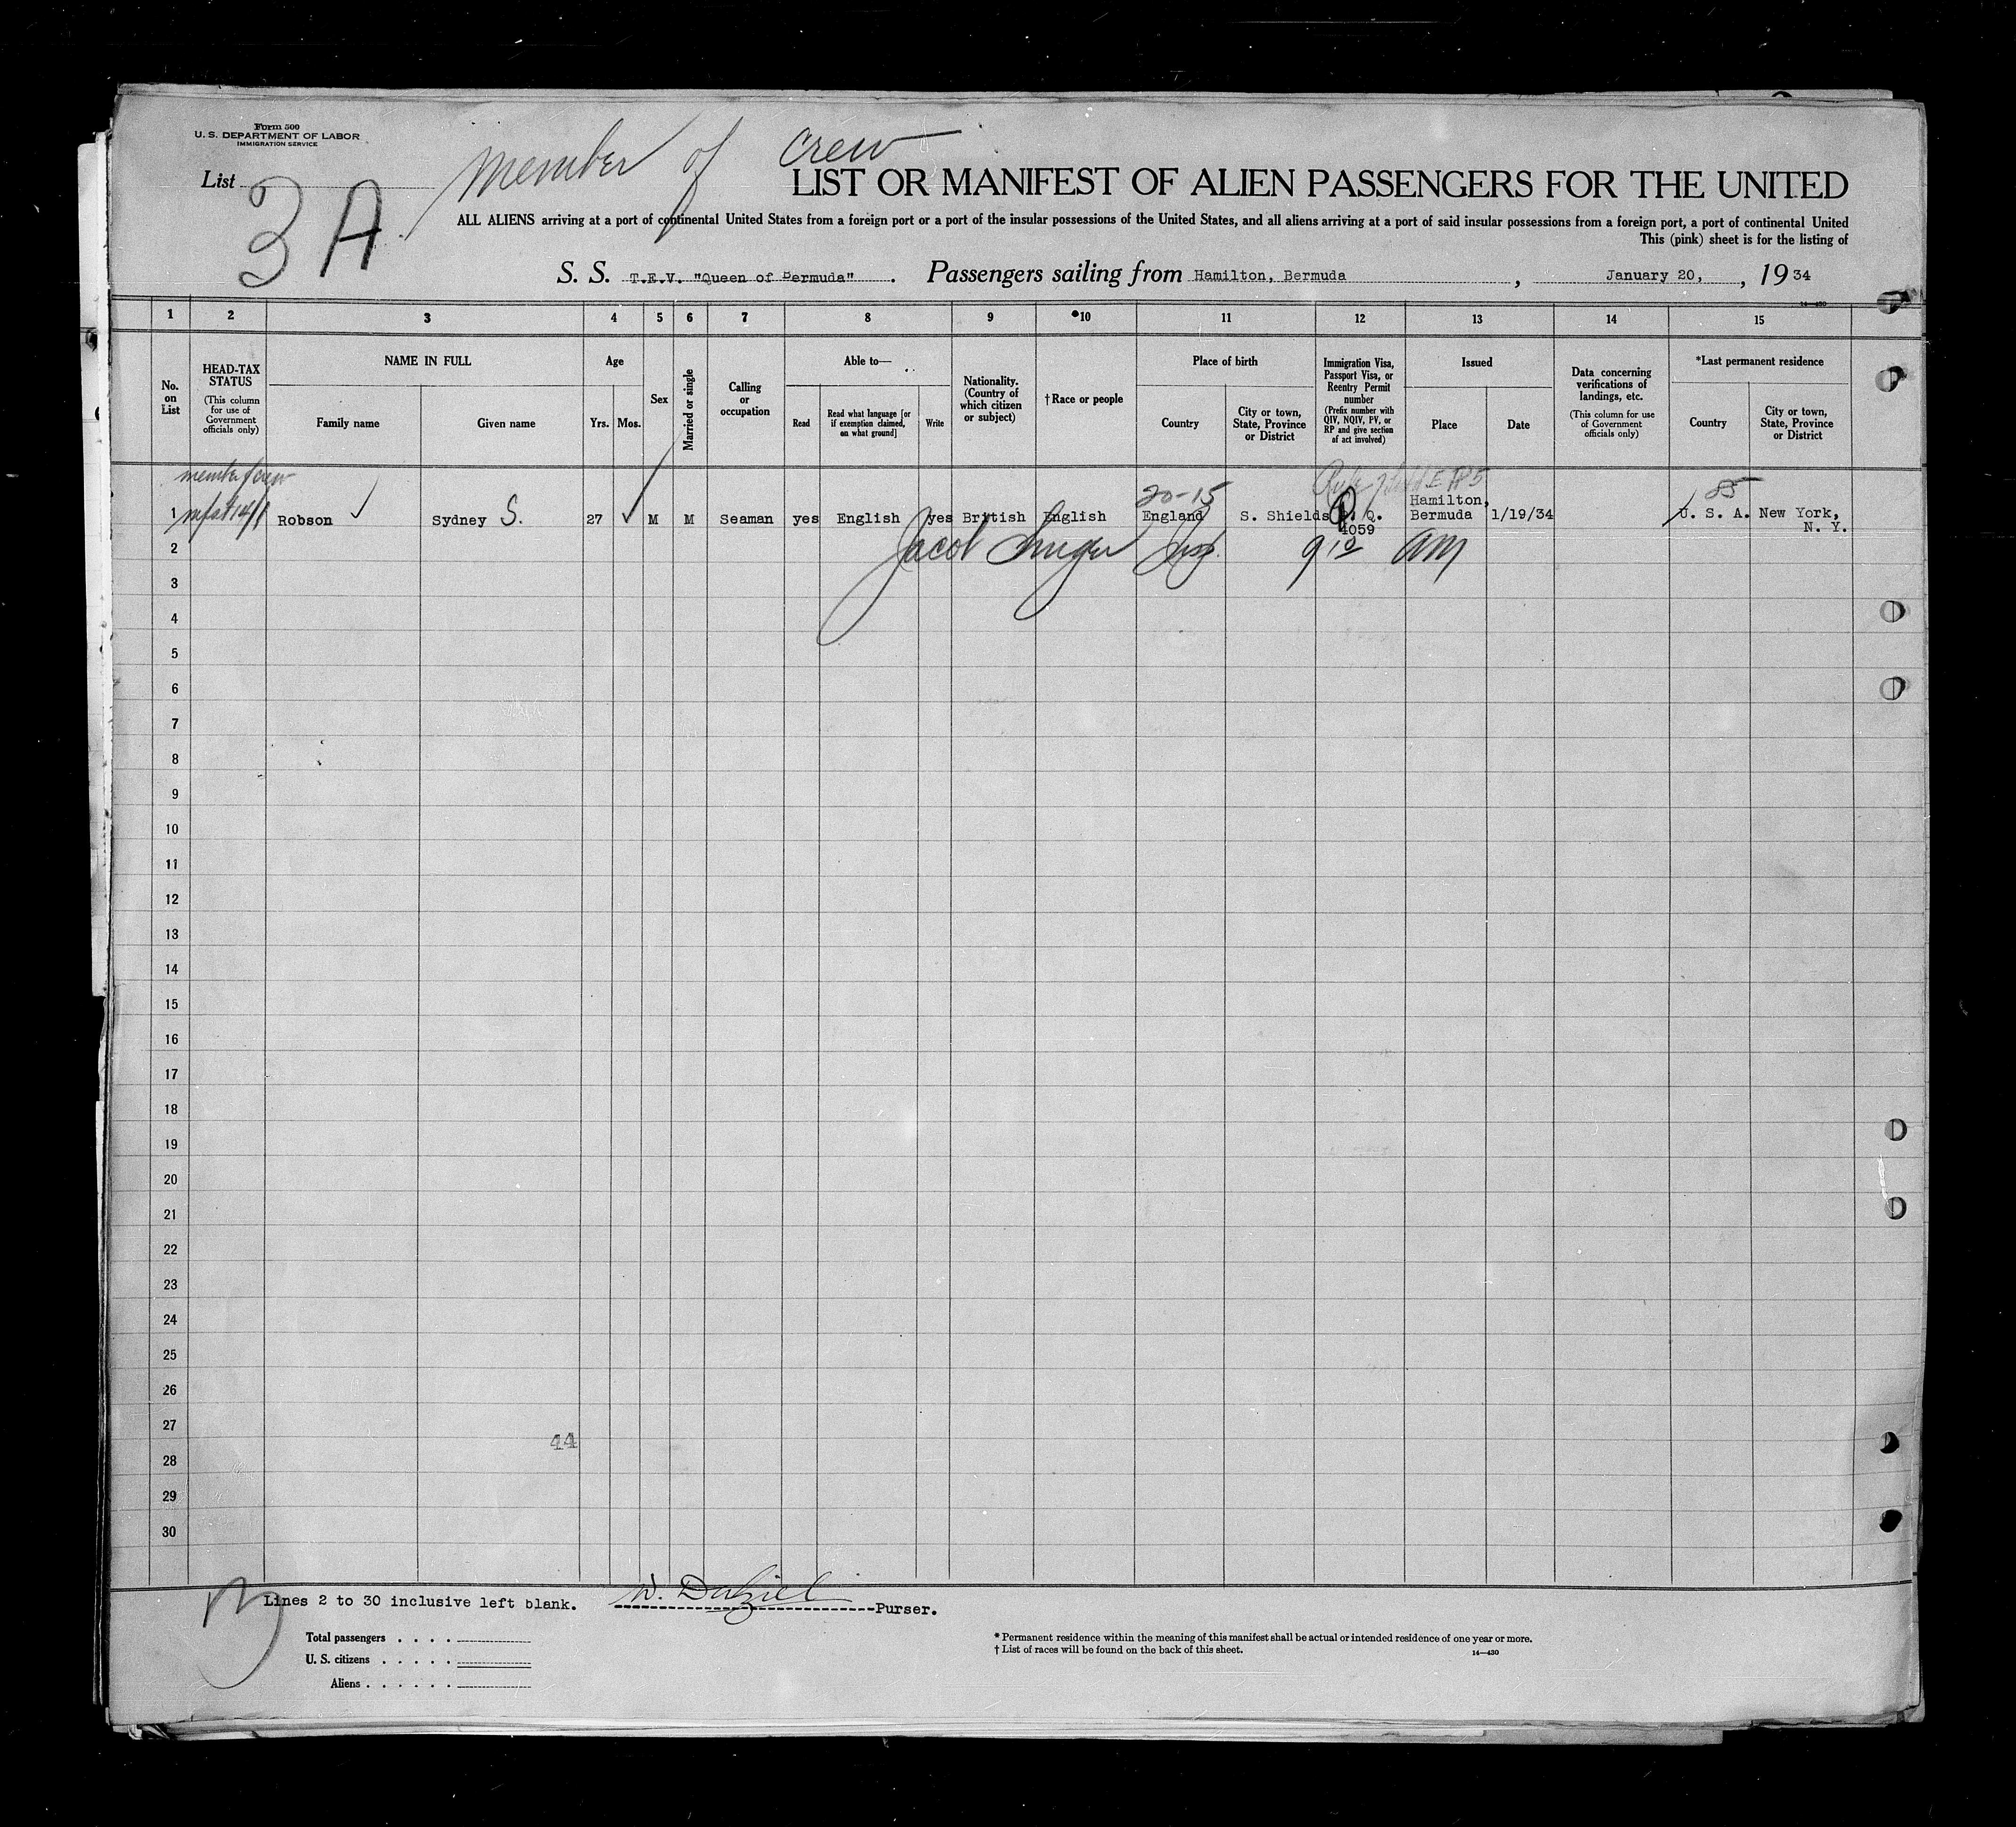 Form 500
U. S. DEPARTMENT OF LABOR
IMMIGRATION SERVICE
List
3 A
Member of Crew
LIST OR MANIFEST OF ALIEN PASSENGERS FOR THE UNITED
ALL ALIENS arriving at a port of continental United States from a foreign port or a port of the insular possessions of the United States, and all aliens arriving at a port of said insular possessions from a foreign port, a port of continental United
This (pink) sheet is for the listing of
S. S. T.E.V. "Queen of Bermuda" . Passengers sailing from Hamilton, Bermuda , January 20, , 19 34
14—430
1 2 3 4 5 6 7 8 9 *10 11 12 13 14 15
No. on List
HEAD-TAX STATUS
(This column for use of Government officials only)
NAME IN FULL
Family name
Given name
Age
Yrs. Mos.
Sex
Married or single
Calling or occupation
Able to—
Read
Read what language [or if exemption claimed, on what ground]
Write
Nationality. (Country of which citizen or subject)
† Race or people
Place of birth
Country
City or town, State, Province or District
Immigration Visa, Passport Visa, or Reentry Permit number
(Prefix number with QIV, NQIV, PV, or RP and give section of act involved)
Issued
Place
Date
Data concerning verifications of landings, etc.
(This column for use of Government officials only)
*Last permanent residence
Country
City or town, State, Province or District
member of crew
20-15
85
1 Robson Sydney S. 27 M M Seaman yes English yes British English England S. Shields 4059 Hamilton, Bermuda 1/19/34 U. S. A. New York, N. Y.
2 Jacob 9 10 am
3
4
5
6
7
8
9
10
11
12
13
14
15
16
17
18
19
20
21
22
23
24
25
26
27
44
28
29
30
Lines 2 to 30 inclusive left blank. W. Dalziel Purser.
Total passengers . . . .
U. S. citizens . . . . .
Aliens . . . . . .
* Permanent residence within the meaning of this manifest shall be actual or intended residence of one year or more.
† List of races will be found on the back of this sheet.
14—430